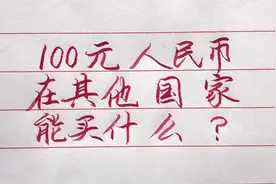 100元人民币
在其他国家
能买什么？